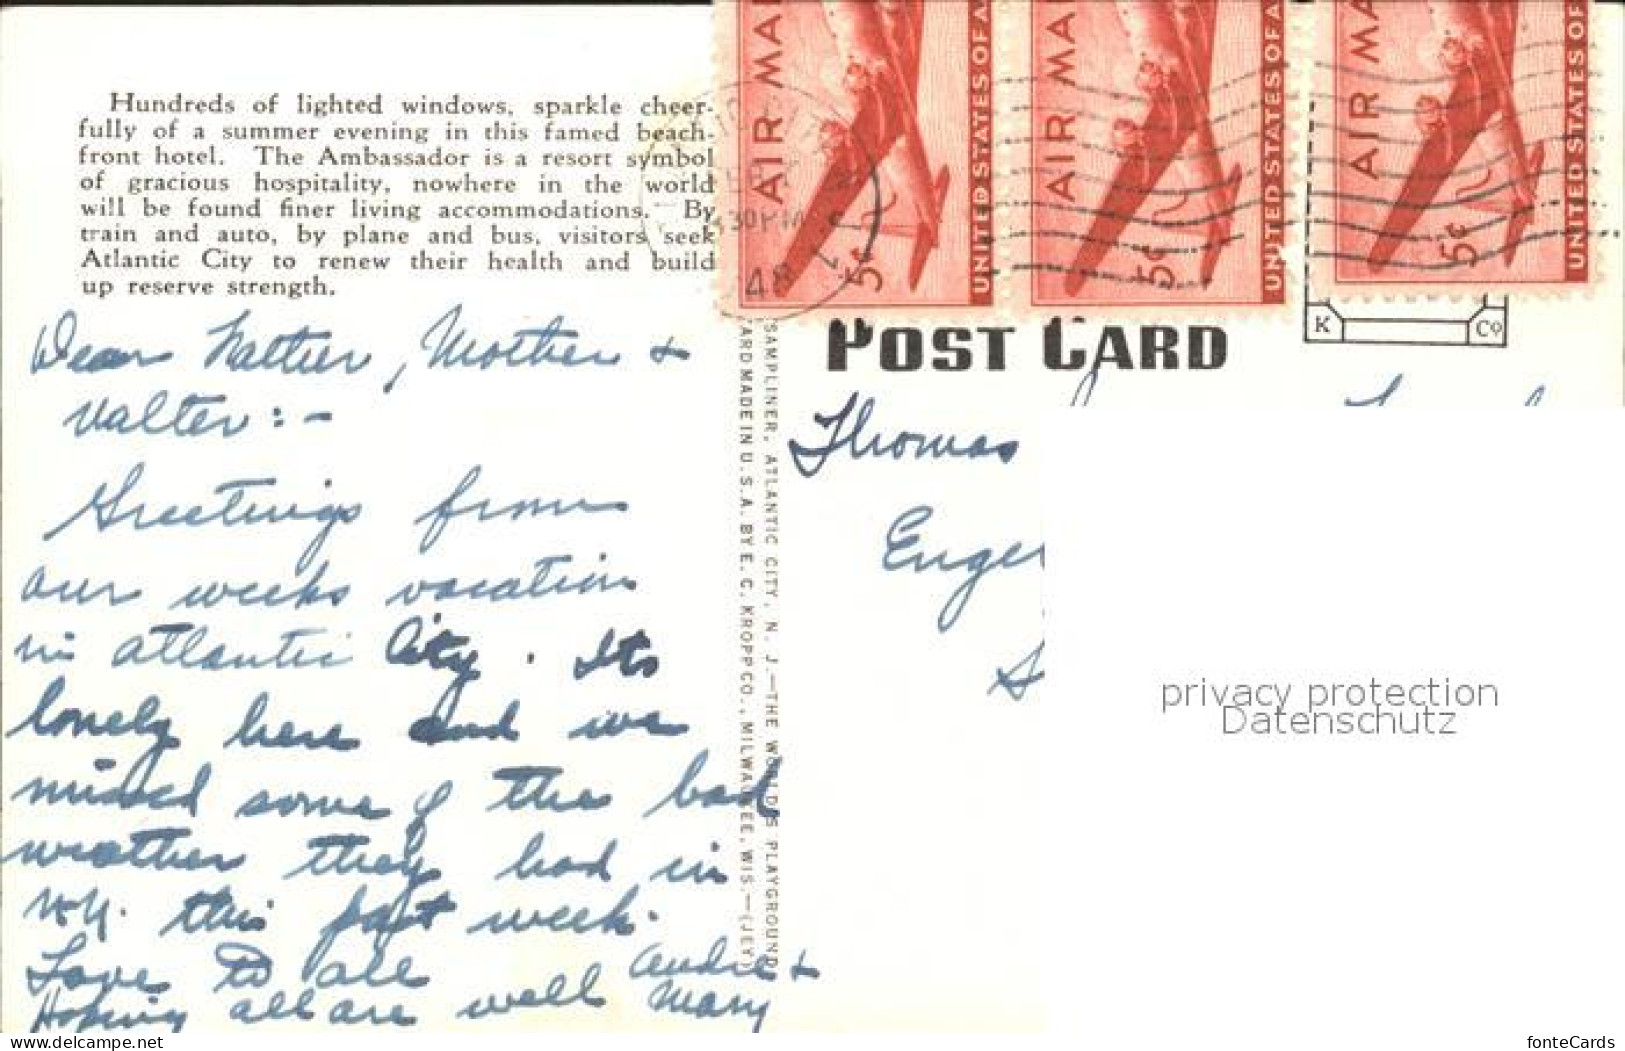 Hundreds of lighted windows, sparkle cheer-
fully of a summer evening in this famed beach-
front hotel. The Ambassador is a resort symbol
of gracious hospitality, nowhere in the world
will be found finer living accommodations. By
train and auto, by plane and bus, visitors seek
Atlantic City to renew their health and build
up reserve strength.
Dear Father, Mother &
Walter:-
Greetings from
our weeks vacation
in Atlantic City. Its
lonely here and we
missed some of the bad
weather they had in
N.Y. this past week.
Love to all
Hoping all are well
Andre &
Mary
SAMPLINER, ATLANTIC CITY, N. J.—THE WORLDS PLAYGROUND
CARD MADE IN U.S.A. BY E. C. KROPP CO., MILWAUKEE, WIS.—(JEY)
AIR MA
5¢
UNITED STATES OF A
AIR MA
5¢
UNITED STATES OF A
AIR MA
5¢
UNITED STATES OF
430 PM
48
K Co
POST CARD
Thomas
Enge
privacy protection
Datenschutz
www.delcampe.net
fonteCards